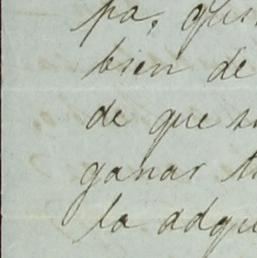 pa, quis
bien de
de que s
ganar t
la adqu